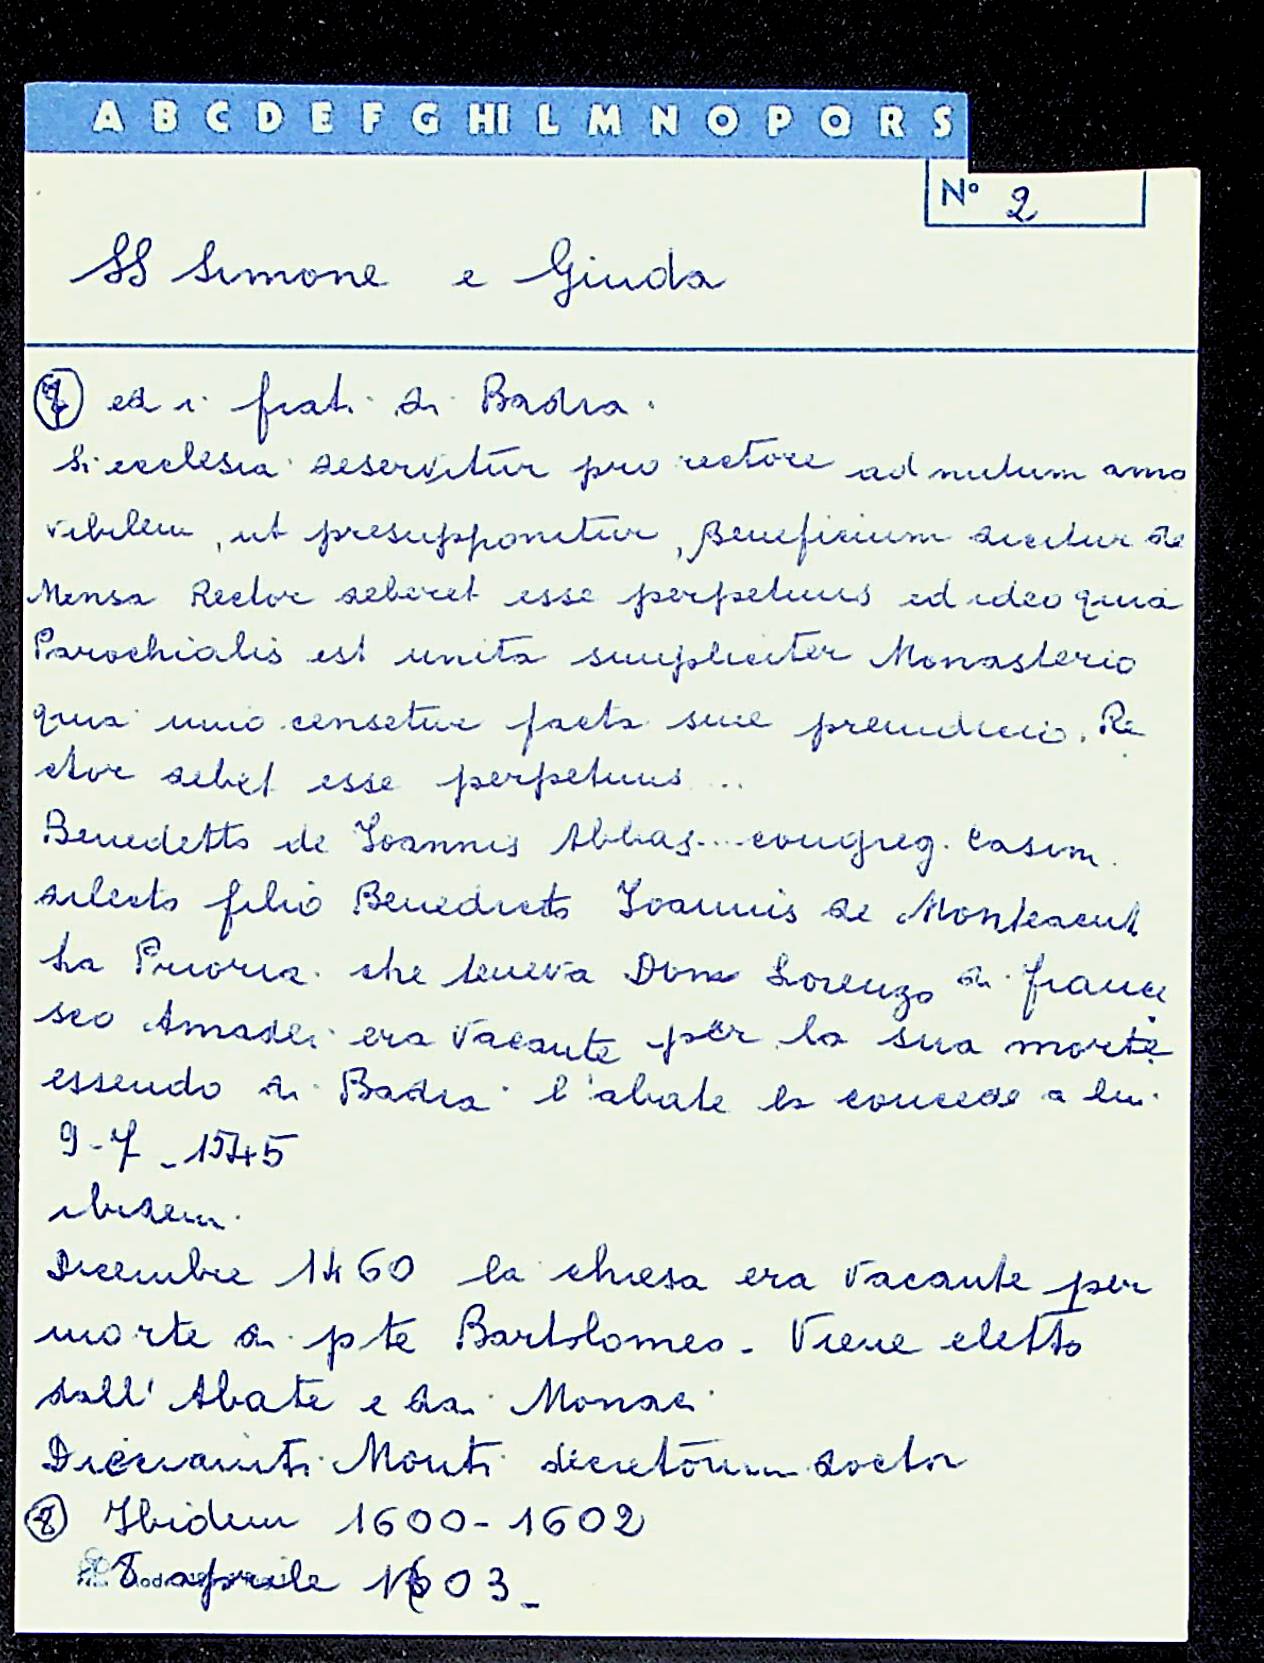 A B C D E F G HI L M N O P Q R S
N° 2
SS Simone e Giuda
7 ed i frati di Badia.
Si ecclesia deservitur pro rectore ad nutum amo
vibilem, ut presupponitur, Beneficium dicitur de
Mensa Rector deberet esse perpetuus ed ideo quia
Parochialis est unita simpliciter Monasterio
quia unio censetur facta sine preiudicio. Re
ctor debet esse perpetuus...
Benedetto de Ioannis Abbas... congreg. Casin.
dilecto filio Benedicto Ioannis de Monteacut
La Prioria che teneva Dom Lorenzo di France
sco Amadei era vacante per la sua morte
essendo di Badia l'abate la concede a lui
9-7-1545
ibidem.
Dicembre 1460 la chiesa era vacante per
morte di pte Bartolomeo. Viene eletto
dall'Abate e dai Monaci
Monti decretorum doctor
8 Ibidem 1600-1602
8 aprile 1603_